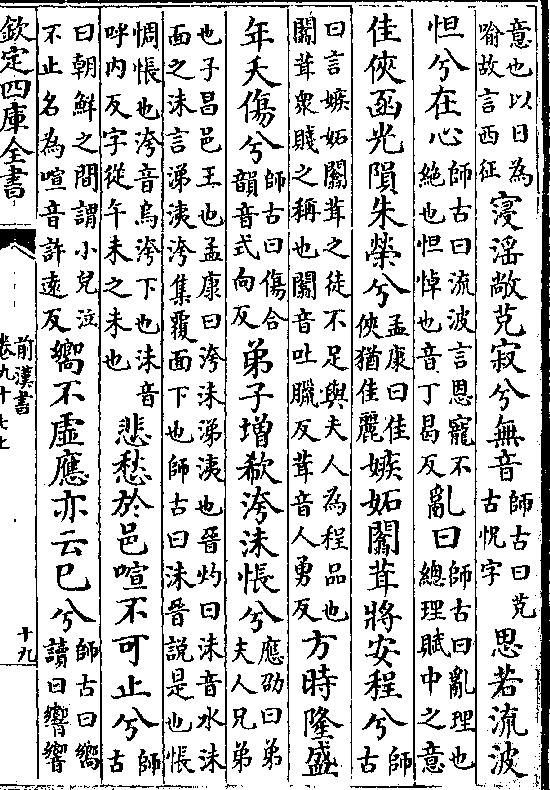 意也以日為
喻故言西征
寖淫敞寂兮無音
師古曰
古怳字
思若流波
怛兮在心
師古曰流波言恩寵不
絶也怛悼也音丁曷反
亂曰
師古曰亂理也
總理賦中之意
佳俠函光隕朱榮兮
孟康曰佳
俠猶佳麗
嫉妬闟茸將安程兮
師
古
曰言嫉妬闟茸之徒不足與夫人為程品也
闟茸衆賤之稱也闟音吐臘反茸音人勇反
方時隆盛
年夭傷兮
師古曰傷合
韻音式向反
弟子增欷洿沬悵兮
應劭曰弟
夫人兄弟
也子昌邑王也孟康曰洿沬涕洟也晉灼曰沬音水沬
面之沬言涕洟洿集覆面下也師古曰沬晉說是也悵
惆悵也洿音烏洿下也沬音
呼内反字從午未之未也
悲愁於邑喧不可止兮
師
古
曰朝鮮之間謂小兒泣
不止名為喧音許逺反
嚮不虛應亦云已兮
師古曰嚮
讀曰響響
欽定四庫全書
前漢書
卷九十七上
十九